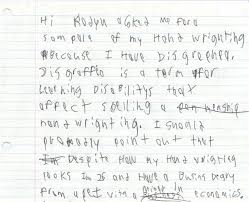 Hi Robyn asked me for a
sample of my Hand wrighting
Because I Have DisGraphea.
Disgraffia is a term for
Learning Disabilitys that
affect spelling a penmenship
Hand wrighting. I should
probably point out that
Despite How my Hand wrighting
looks Im 25 and Have a Busness Degry
from a with a minor in economics,